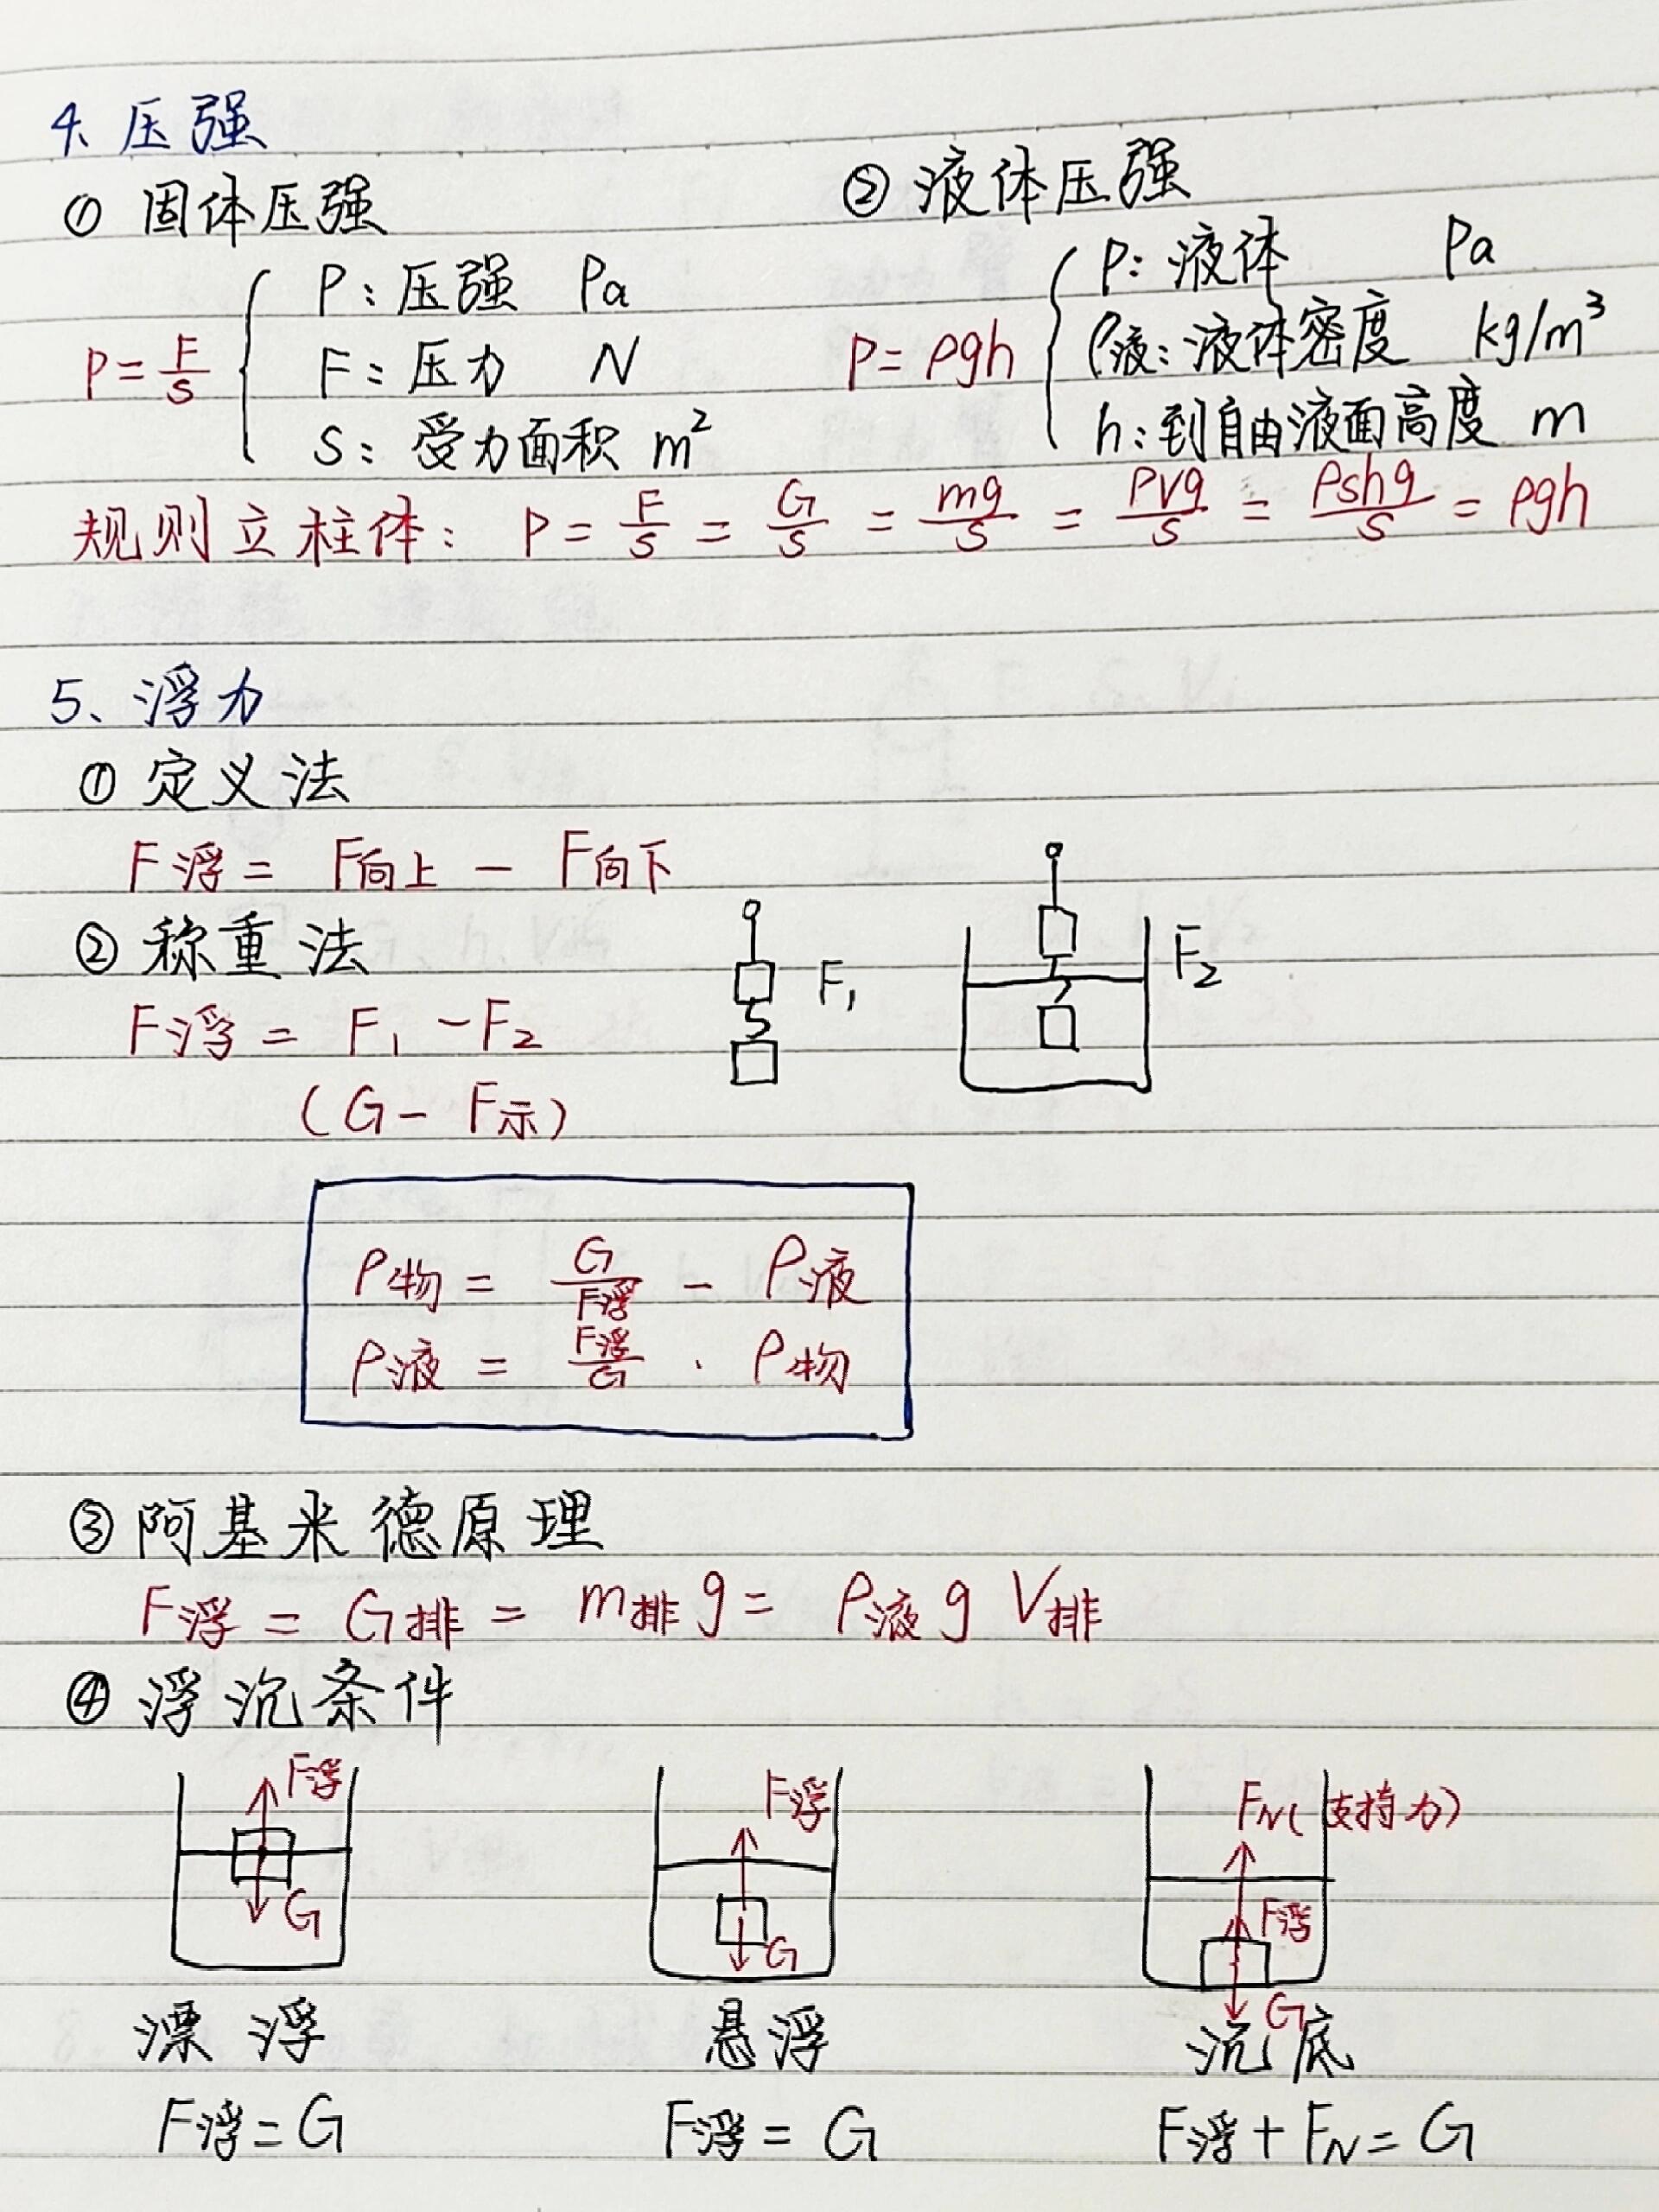 4、压强
① 固体压强
P=F/S
P：压强 Pa
F：压力 N
S：受力面积 m²
② 液体压强
P=ρgh
P：液体 Pa
ρ液：液体密度 kg/m³
h：到自由液面高度 m
规则立柱体：P=F/S=G/S=mg/S=ρVg/S=ρshg/S=ρgh
5、浮力
① 定义法
F浮=F向上-F向下
② 称重法
F浮=F₁-F₂
(G-F示)
F₁
F₂
ρ物=G/F浮-ρ液
ρ液=F浮/G·ρ物
③ 阿基米德原理
F浮=G排=m排g=ρ液gV排
④ 浮沉条件
F浮
G
漂浮
F浮=G
F浮
G
悬浮
F浮=G
FN(支持力)
F浮
G
沉底
F浮+FN=G